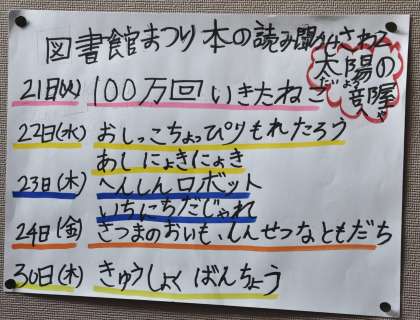 図書館まつり本の読み聞かせ
太陽の
部屋
21日(火) 100万回いきたねこ
22日(水) おしっこちょっぴりもれたろう
あしにょきにょき
23日(木) へんしんロボット
いちにちだじゃれ
24日(金) さつまのおいも、しんせつなともだち
30日(木) きゅうしょくばんちょう